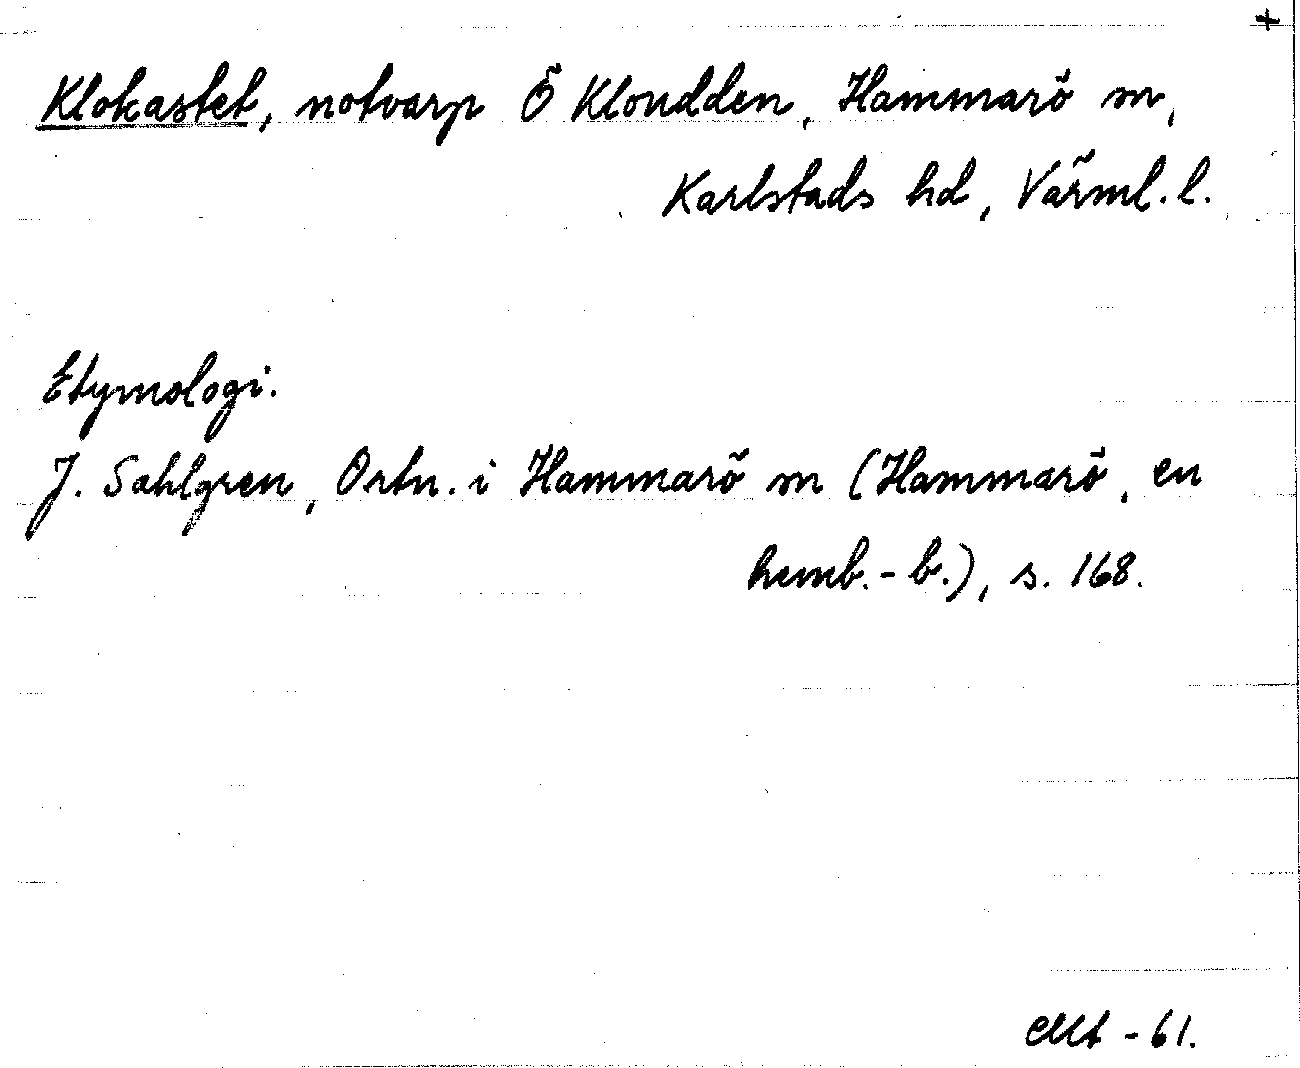 +
Klokastet, notvarp Ö Kloudden, Hammarö sn,
Karlstads hd, Värml. l.
Etymologi.
J. Sahlgren, Ortn. i Hammarö sn (Hammarö, en
hemb.-b.), s. 168.
-61.